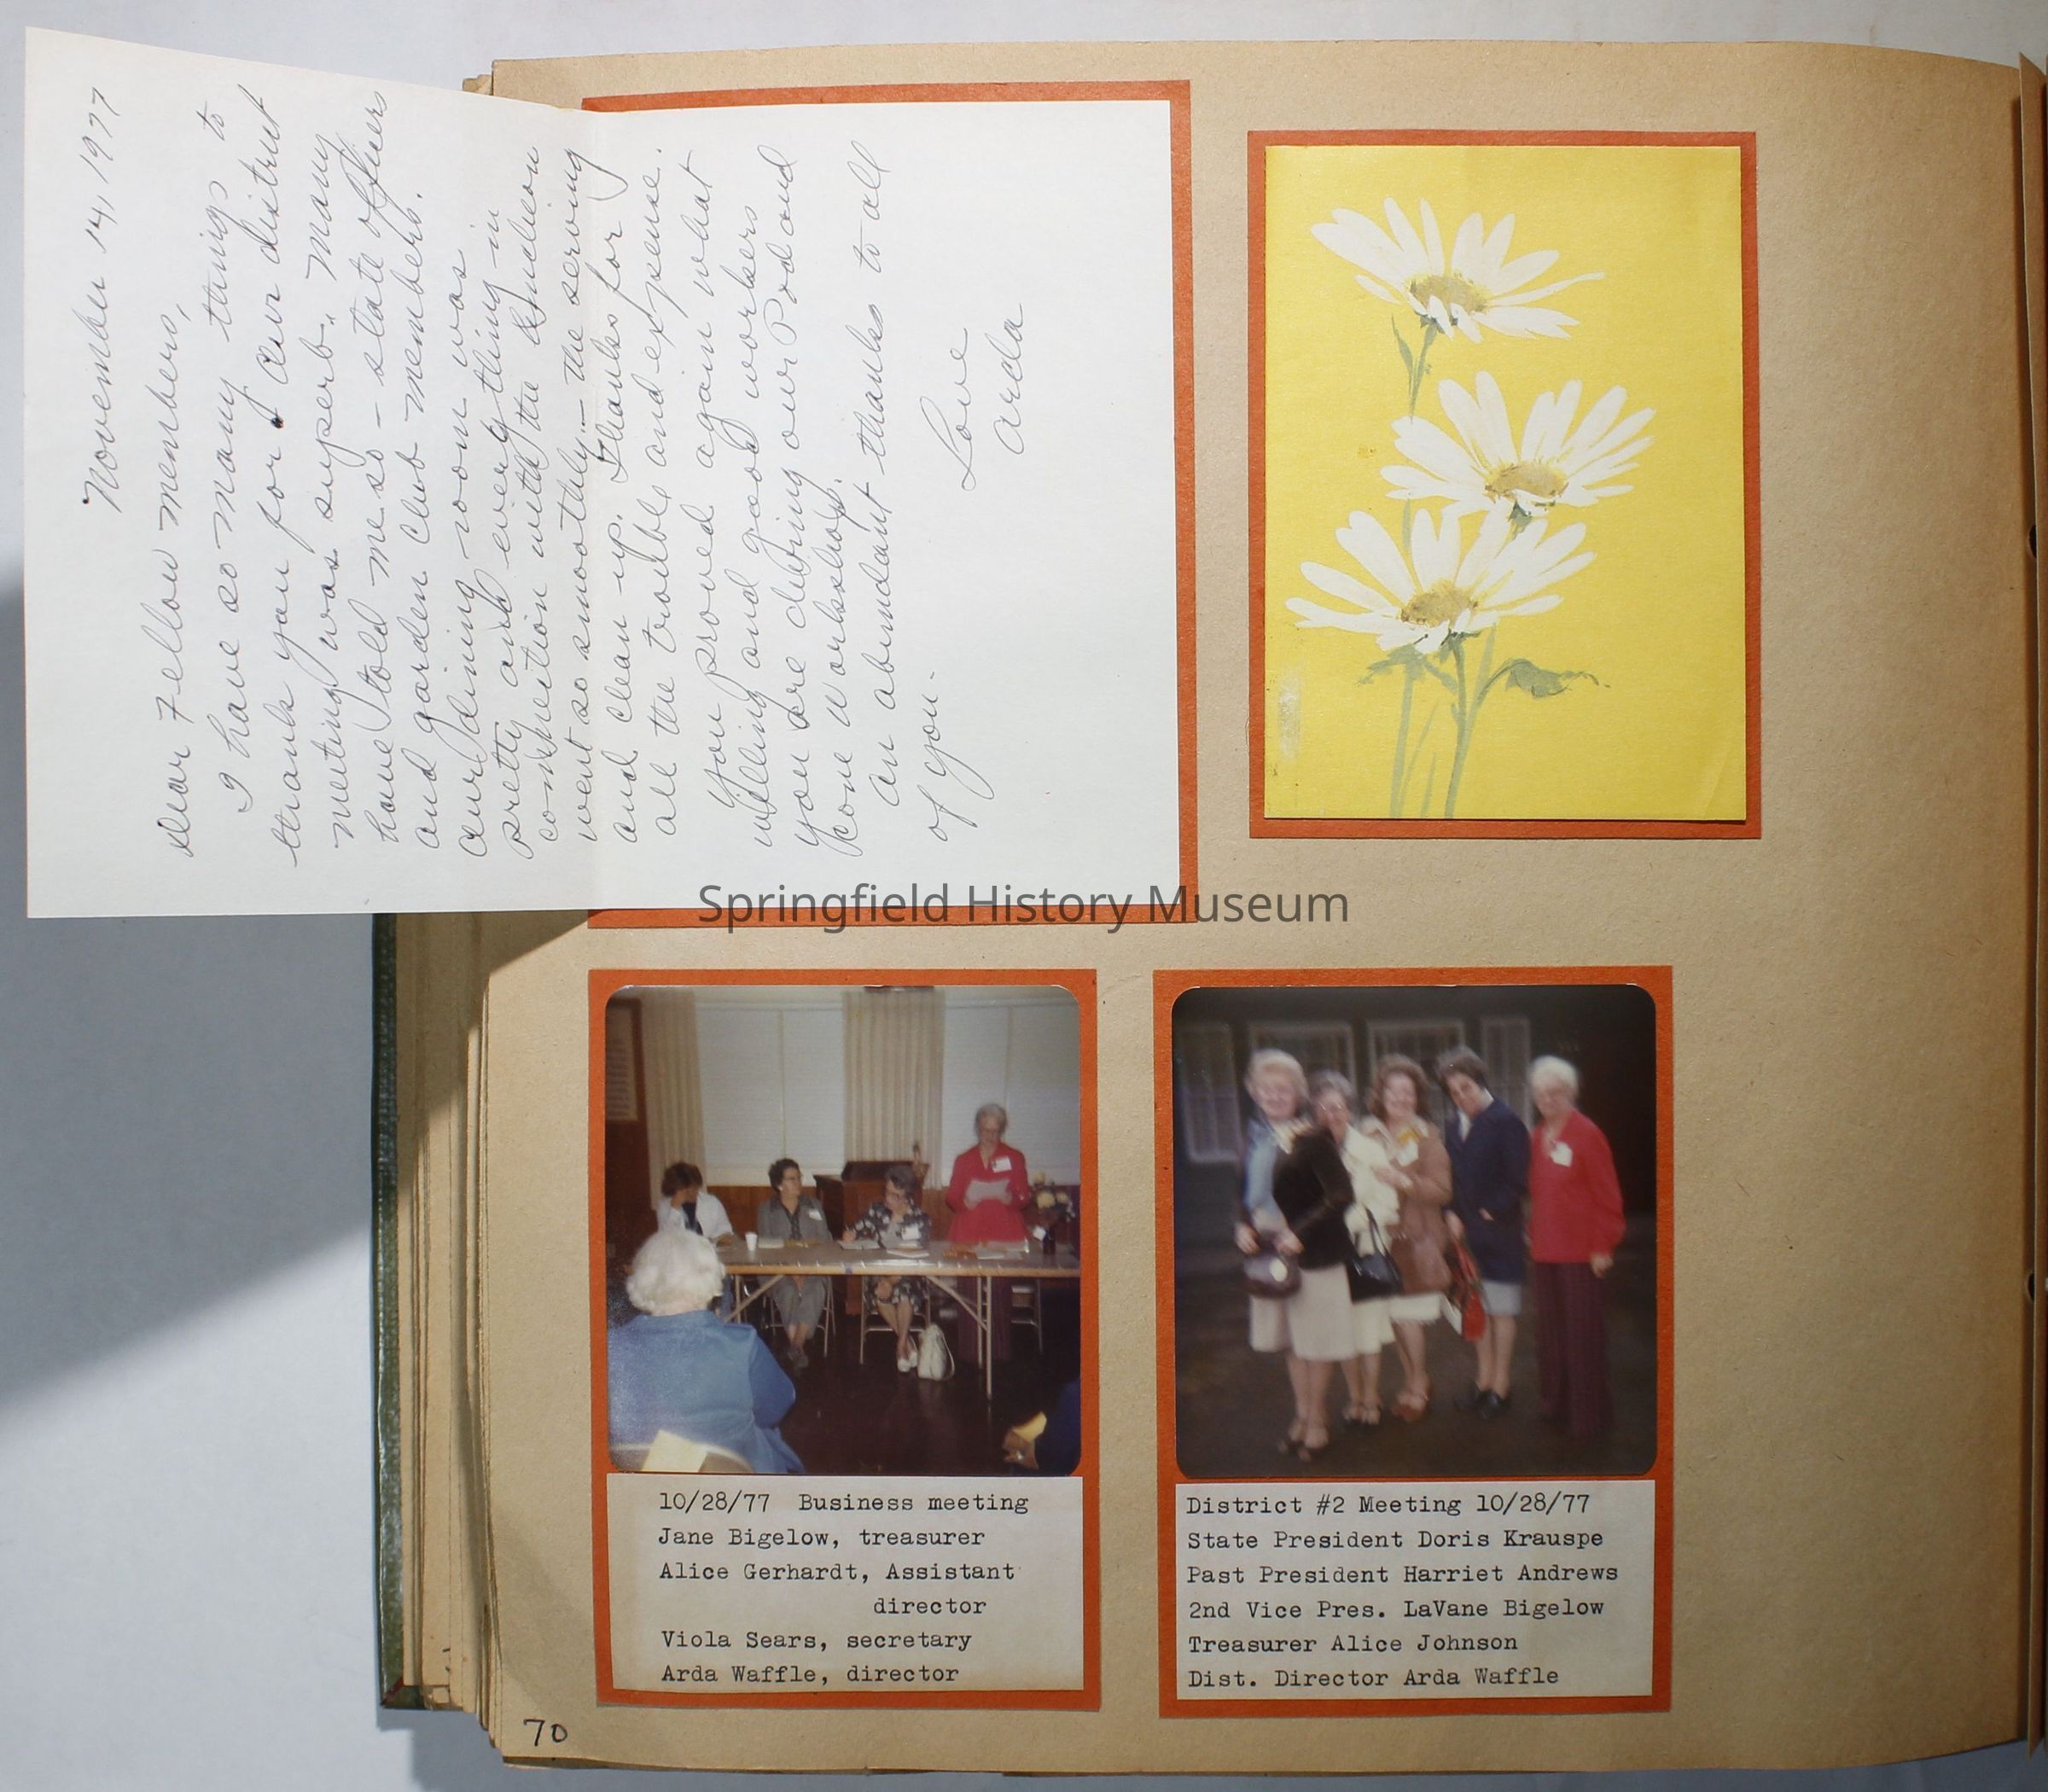 November 14, 1977
Dear Fellow members,
I have so many things to
thank you for. Our district
meeting was superb. Many
have told me so - state officers
and garden club members.
Our dining room was
pretty and everything in
connection with the luncheon
went so smoothly - the serving
and clean up. Thanks for
all the trouble and expense.
You proved again what
willing and good workers
you are during our Pod and
Cone Workshop.
An abundant thanks to all
of you.
Love
Arda
Springfield History Museum
10/28/77 Business meeting
Jane Bigelow, treasurer
Alice Gerhardt, Assistant
director
Viola Sears, secretary
Arda Waffle, director
District #2 Meeting 10/28/77
State President Doris Krauspe
Past President Harriet Andrews
2nd Vice Pres. LaVane Bigelow
Treasurer Alice Johnson
Dist. Director Arda Waffle
70